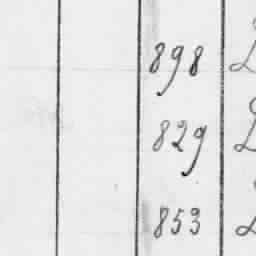 898
829
853